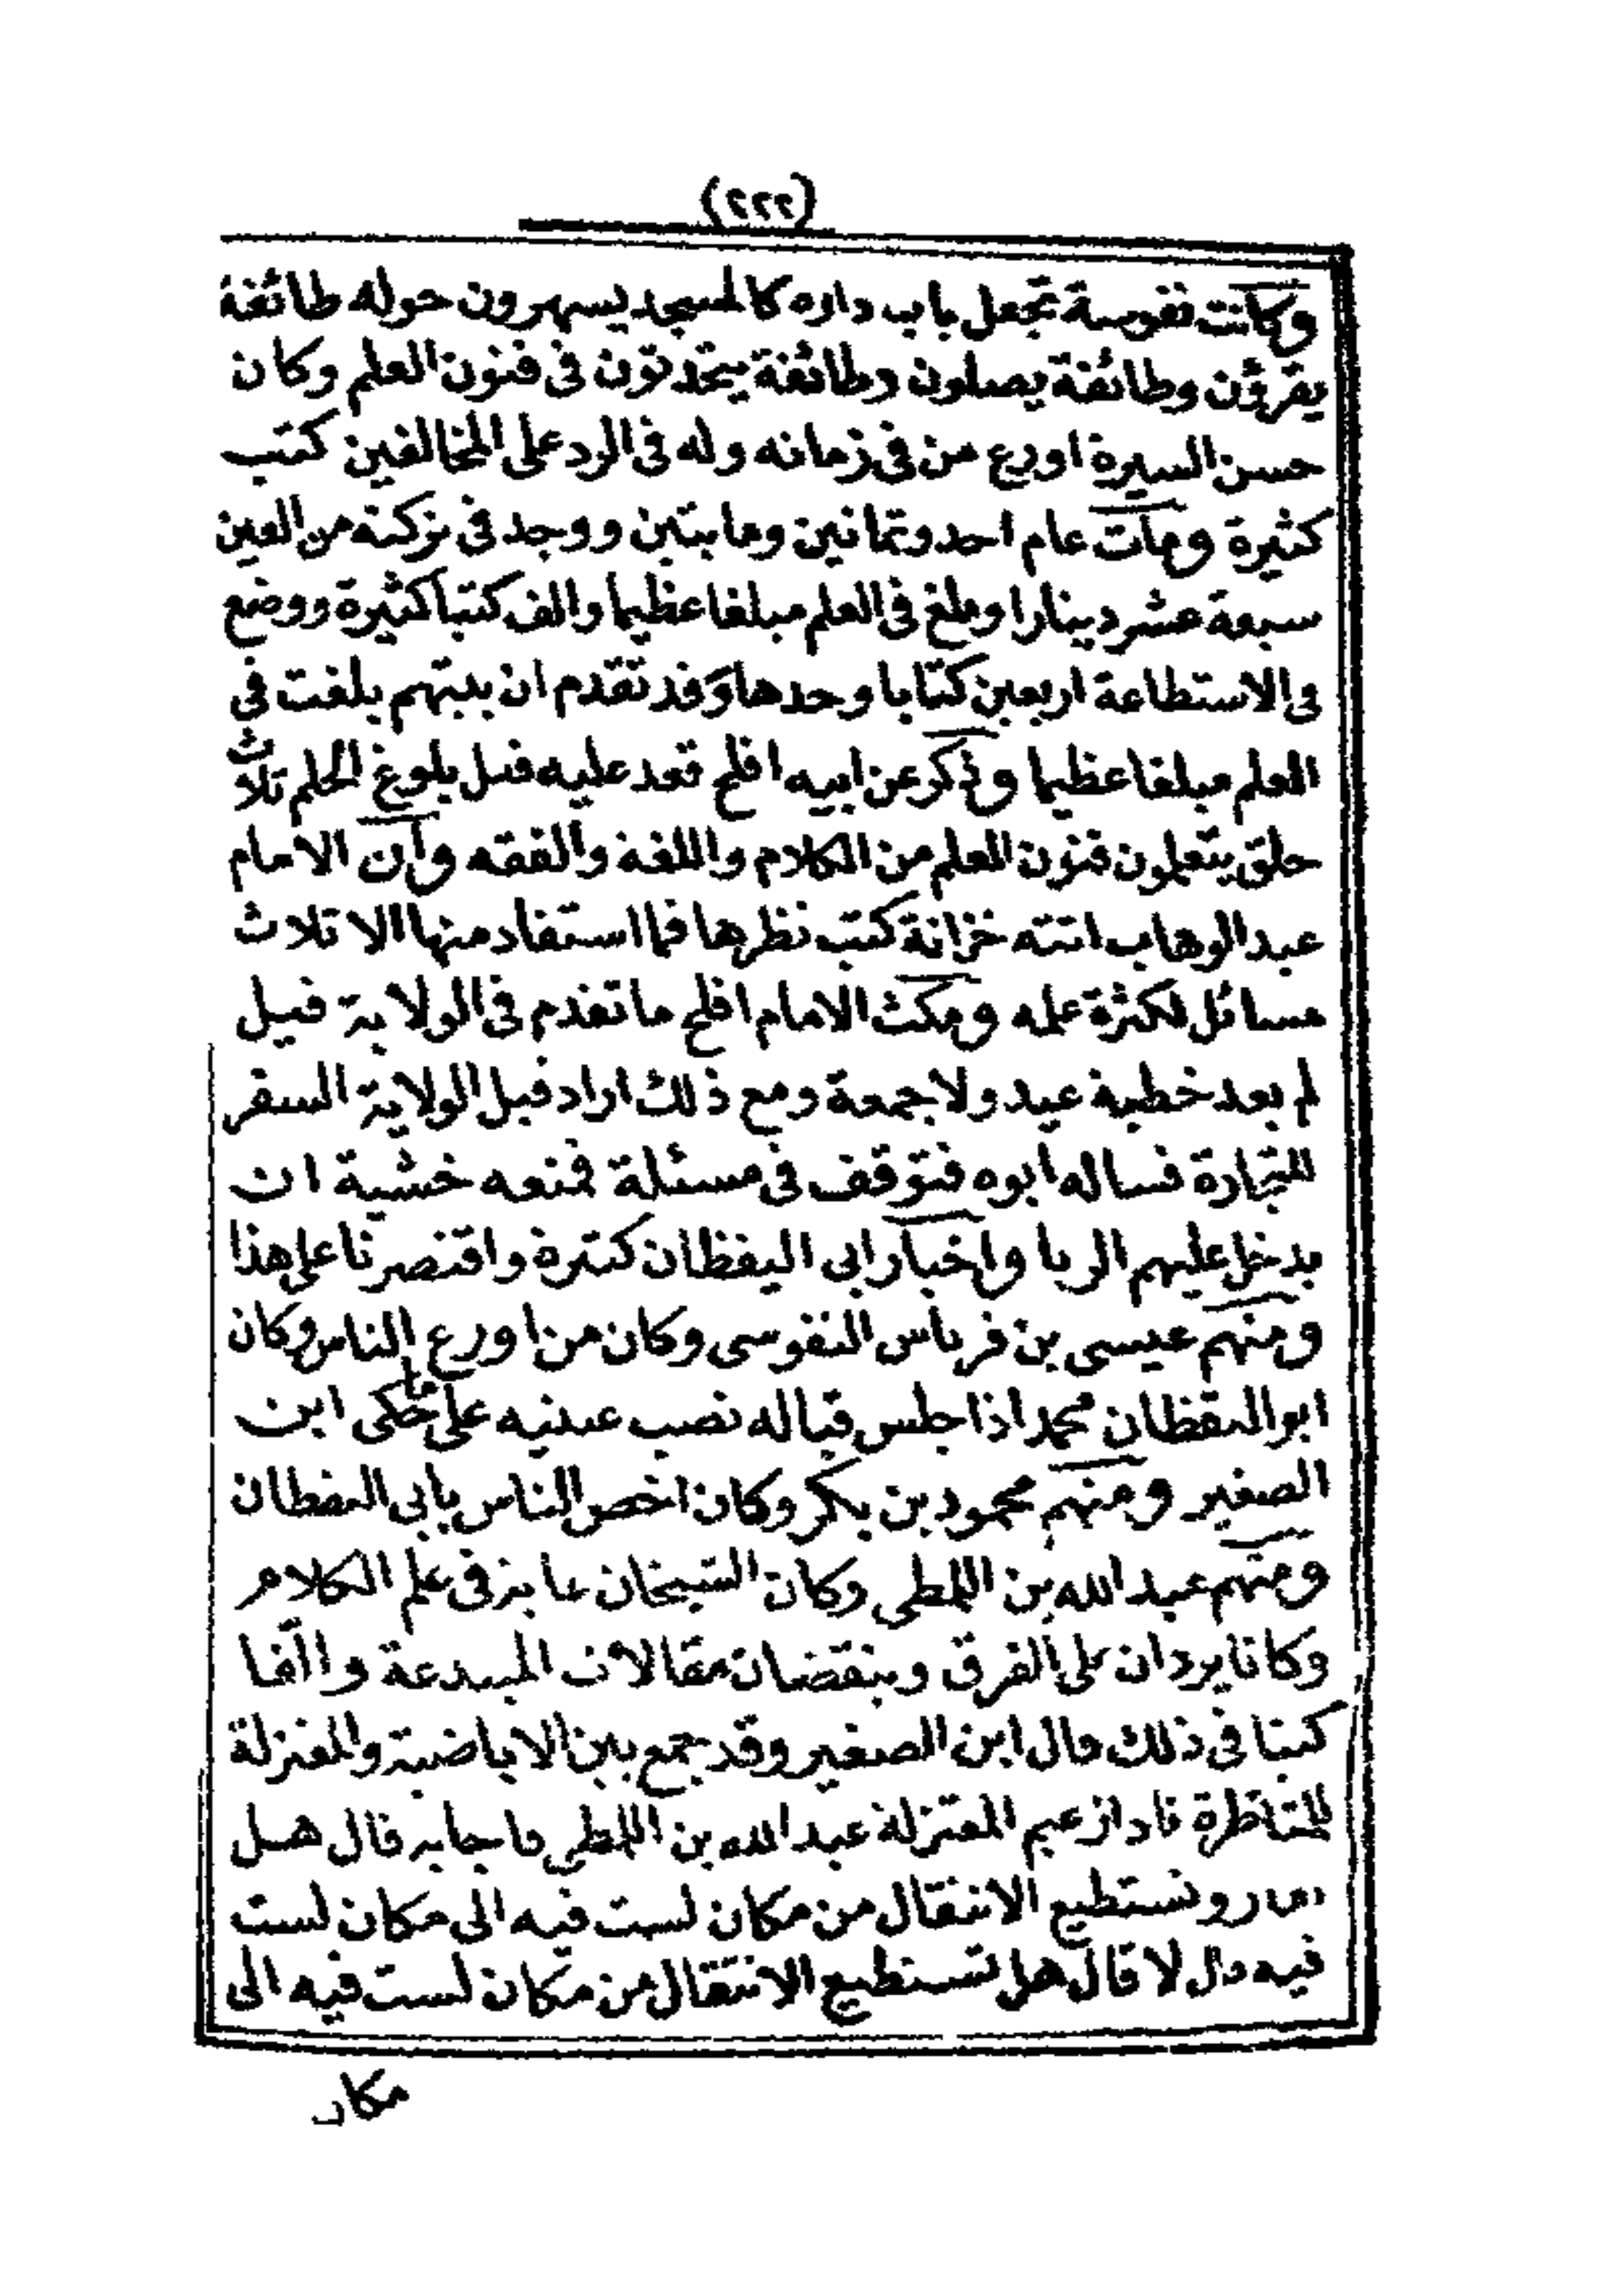 (٢٢٢)
وكانت نفوسة تجعل باب داره كالمسجد يسهرون حوله طائفة
يقرؤن وطائفة يصلون وطائفة يتحدثون فى فنون العلم وكان
حسن السيرة اورع من فى زمانه وله فى الرد على المخالفين كتب
كثيرة ومات عام احد وثمانين ومايتين ووجد فى تركته من العين
سبعة عشر دينارا وبلغ فى العلم مبلغا عظيما والف كتبا كثيرة ووضع
فى الاستطاعة اربعين كتابا وحدها وقد تقدم ان بيتهم بلغت فى
العلم مبلغا عظيما وذكر عن ابيه افلح قعد عليه قبل بلوغ الحلم ثلاث
حلق يتعلمون فنون العلم من الكلام واللغة والفقه وان الامام
عبد الوهاب اتته خزانة كتب نظرها فما استفاد منها الا ثلاث
مسائل لكثرة علمه ومكث الامام افلح ما تقدم فى الولاية قيل
لم يعد خطبة عيد ولا جمعة ومع ذلك اراد قبل الولاية السفر
للتجارة فساله ابوه فتوقف فى مسئلة فمنعه خشية ان
يدخل عليهم الربا واخبار ابى اليقظان كثيرة واقتصرنا على هذا
ومنهم عيسى بن فرناس النفوسى وكان من اورع الناس وكان
ابو اليقظان محمد اذا جلس قباله نصب عينيه على ما حكى ابن
الصغير ومنهم محمود بن بكر وكان اخص الناس بابى اليقظان
ومنهم عبد الله بن اللمطى وكان الشيخان غاية فى علم الكلام
وكانا يردان على الفرق وينقضان مقالات المبتدعة والفا
كتبا فى ذلك قال ابن الصغير وقد جمع بين الاباضية والمعتزلة
للمناظرة فنادا زعيم المعتزلة عبد الله بن اللمطى فاجابه قال هل
وتستطيع الانتقال من مكان لست فيه الى مكان لست
فيه قال لا قال هل تستطيع الانتقال من مكان لست فيه الى
مكان